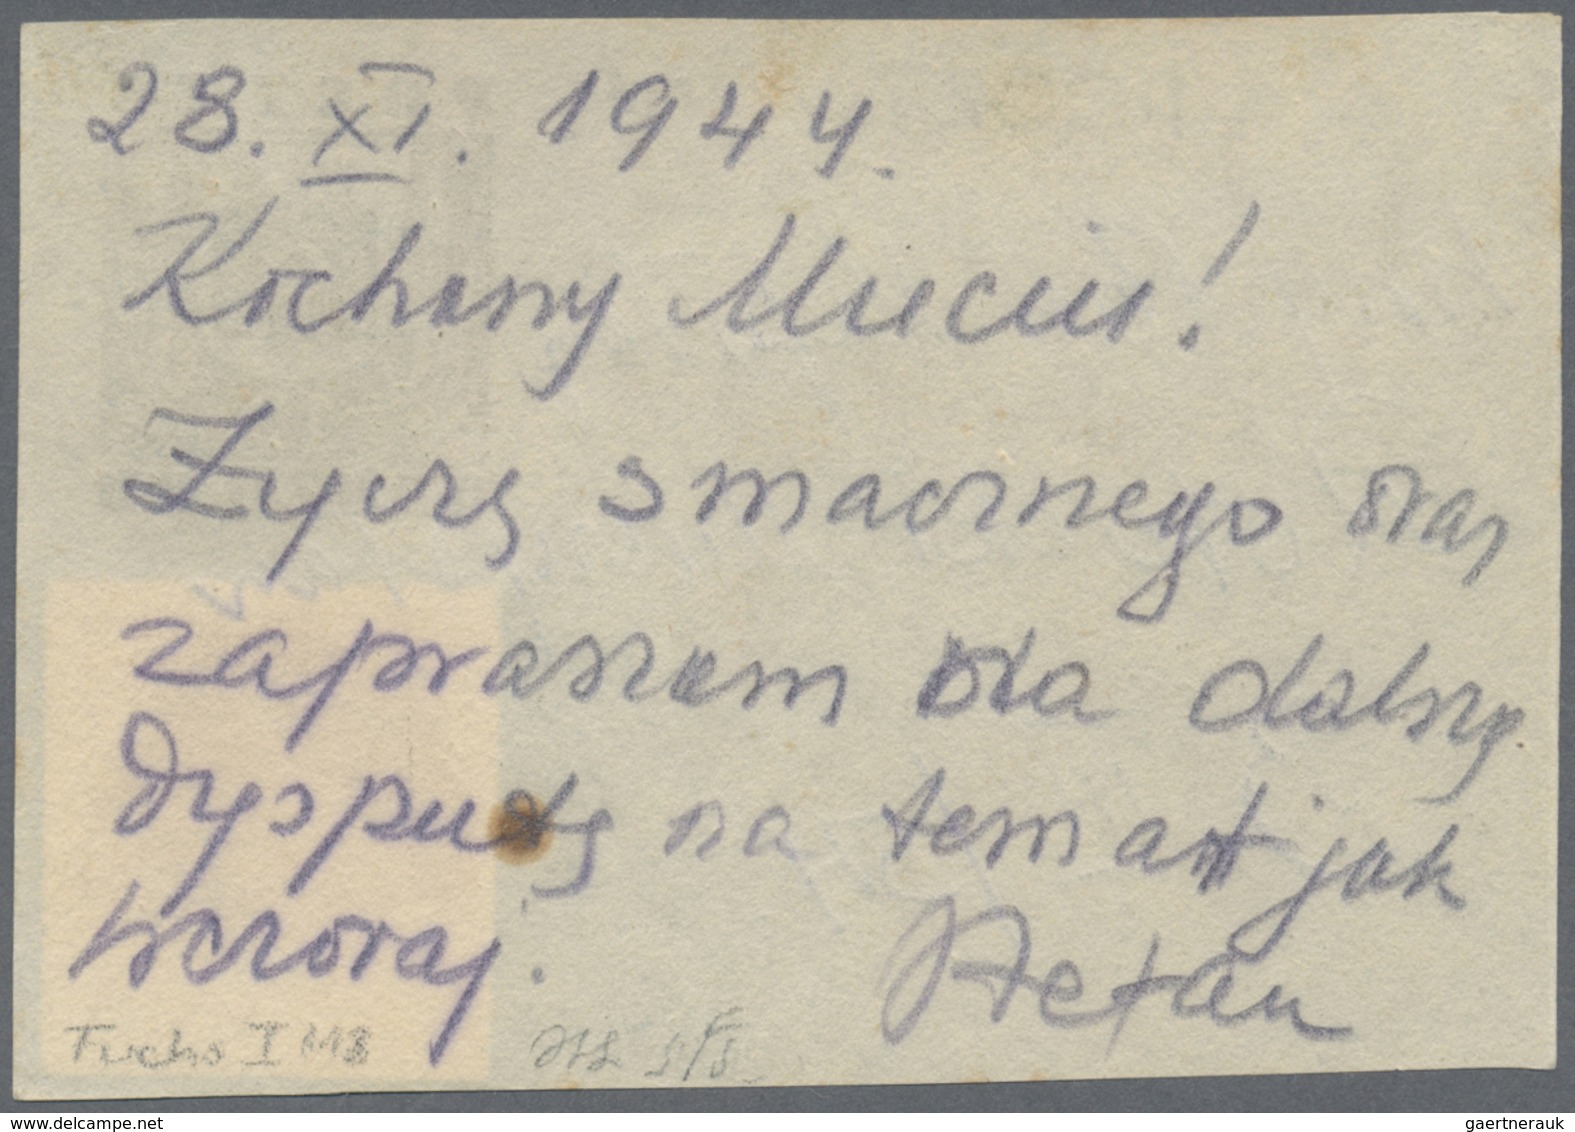 28. XI. 1944.
Kochany Mieciu!
Życzę smacznego oraz
zapraszam dla dalszej
dysputy na temat jak
wczoraj.
Stefan
Fuchs I
delcampe.net
gaertnerauk